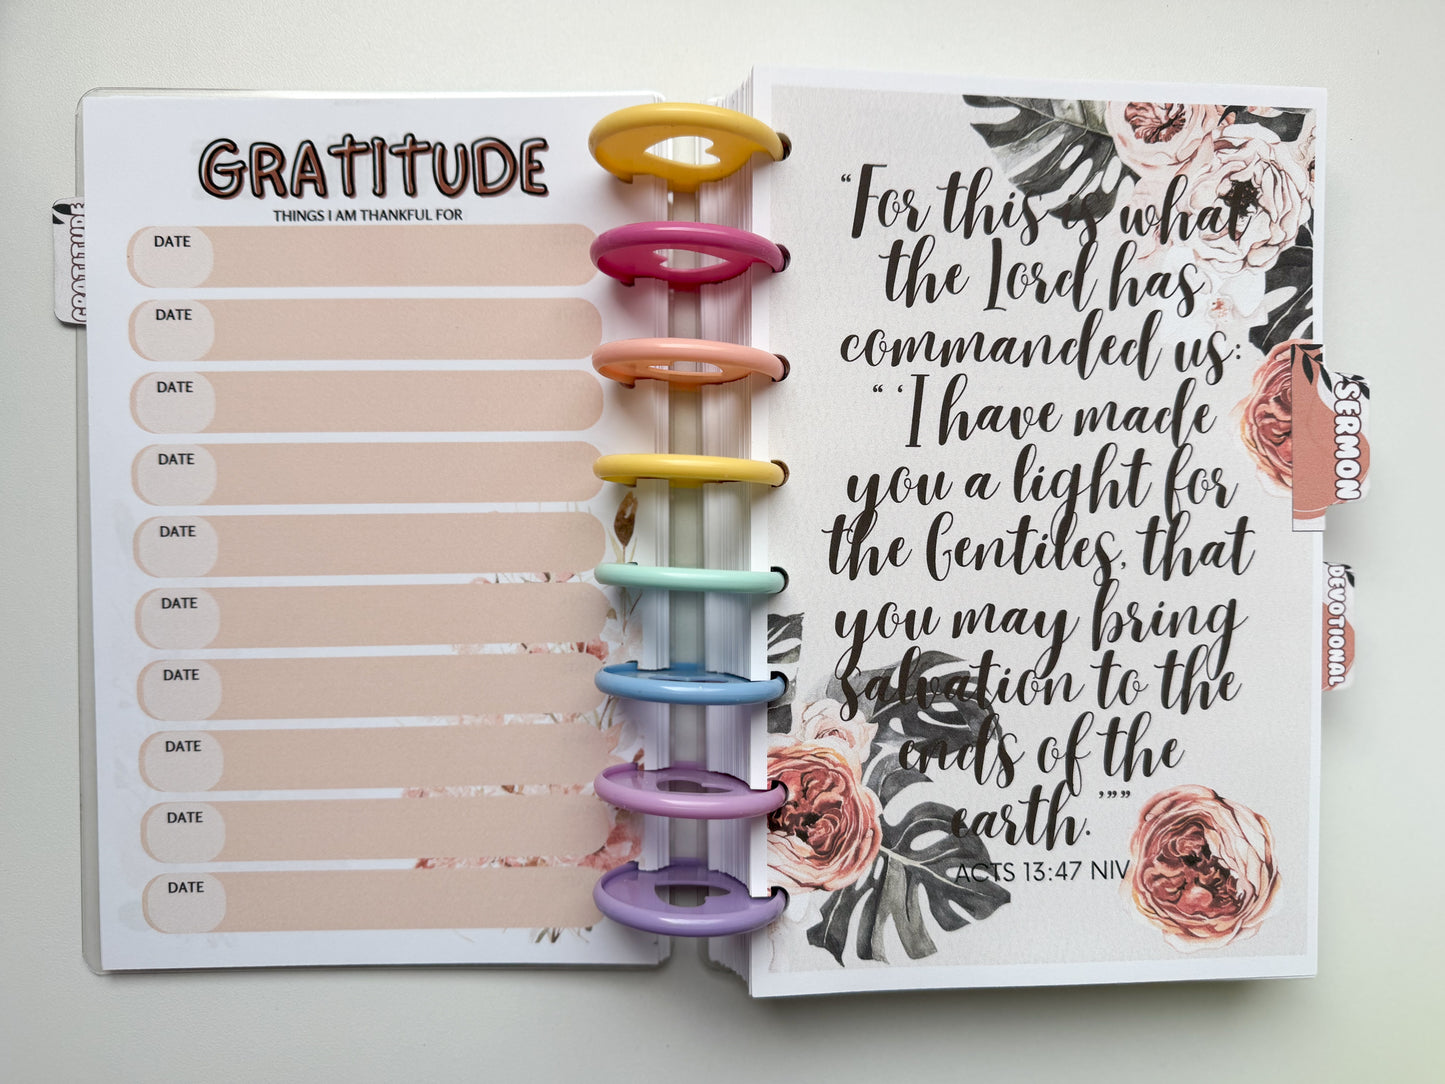 GRATITUDE
THINGS I AM THANKFUL FOR
DATE
DATE
DATE
DATE
DATE
DATE
DATE
DATE
DATE
DATE
GRATITUDE
“For this is what
the Lord has
commanded us:
“ ‘I have made
you a light for
the Gentiles, that
you may bring
salvation to the
ends of the
earth. ’””
ACTS 13:47 NIV
SERMON
DEVOTIONAL